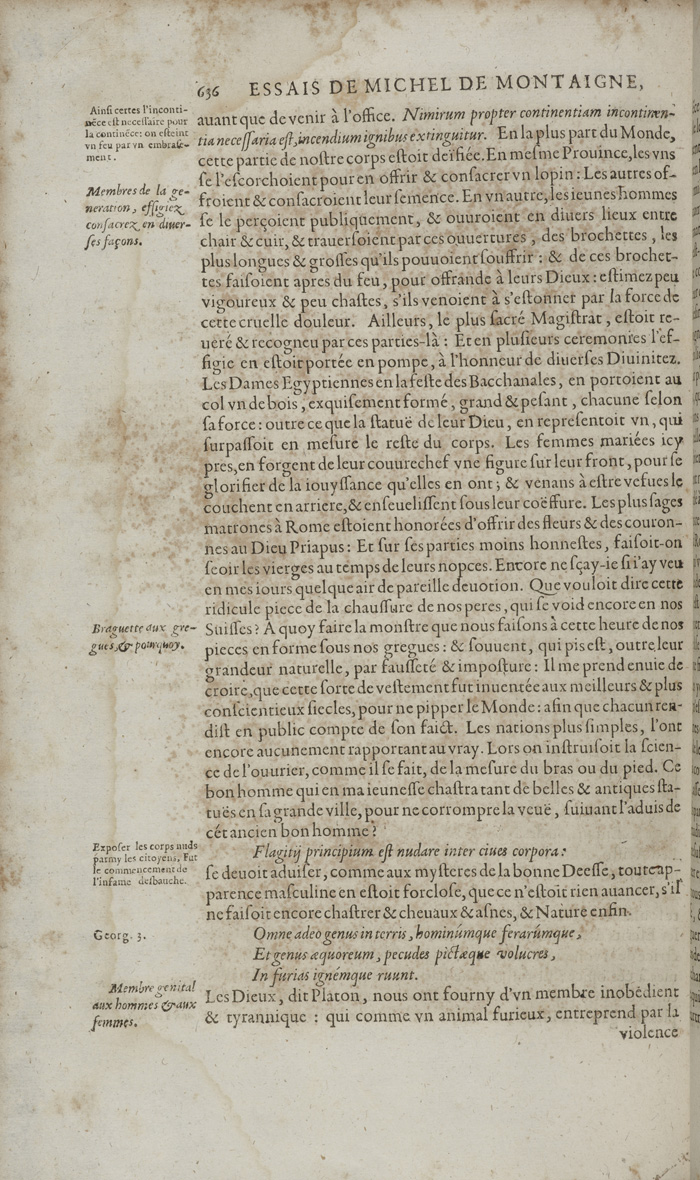 636 ESSAIS DE MICHEL DE MONTAIGNE,
Ainsi certes l'inconti-
nẽce est necessaire pour
la continẽce: on esteint
vn feu par vn embrase-
ment.
auant que de venir à l'office. Nimirum propter continentiam incontinen-
tia necessaria est, incendium ignibus extinguitur. En la plus part du Monde,
cette partie de nostre corps estoit deïfiée. En mesme Prouince, les vns
se l'escorchoient pour en offrir & consacrer vn lopin : Les autres of-
froient & consacroient leur semence. En vn autre, les ieunes hommes
Membres de la ge-
neration, effigiez
consacrez en diuer-
ses façons.
se le perçoient publiquement, & ouuroient en diuers lieux entre
chair & cuir, & trauersoient par ces ouuertures, des brochettes, les
plus longues & grosses qu'ils pouuoient souffrir : & de ces brochet-
tes faisoient apres du feu, pour offrande à leurs Dieux : estimez peu
vigoureux & peu chastes, s'ils venoient à s'estonner par la force de
cette cruelle douleur. Ailleurs, le plus sacré Magistrat, estoit re-
ueré & recogneu par ces parties-là : Et en plusieurs ceremonies l'ef-
figie en estoit portée en pompe, à l'honneur de diuerses Diuinitez.
Les Dames Egyptiennes en la feste des Bacchanales, en portoient au
col vn de bois, exquisement formé, grand & pesant, chacune selon
sa force : outre ce que la statuë de leur Dieu, en representoit vn, qui
surpassoit en mesure le reste du corps. Les femmes mariées icy
pres, en forgent de leur couurechef vne figure sur leur front, pour se
glorifier de la iouyssance qu'elles en ont ; & venans à estre vefues le
couchent en arriere, & enseuelissent sous leur coëffure. Les plus sages
matrones à Rome estoient honorées d'offrir des fleurs & des couron-
nes au Dieu Priapus : Et sur ses parties moins honnestes, faisoit-on
seoir les vierges au temps de leurs nopces. Encore ne sçay-ie si i'ay veu
en mes iours quelque air de pareille deuotion. Que vouloit dire cette
ridicule piece de la chaussure de nos peres, qui se void encore en nos
Braguette aux gre-
gues, & pourquoy.
Suisses ? A quoy faire la monstre que nous faisons à cette heure de nos
pieces en forme sous nos gregues : & souuent, qui pis est, outre leur
grandeur naturelle, par fausseté & imposture : Il me prend enuie de
croire, que cette sorte de vestement fut inuentée aux meilleurs & plus
conscientieux siecles, pour ne pipper le Monde : afin que chacun ren-
dist en public compte de son faict. Les nations plus simples, l'ont
encore aucunement rapportant au vray. Lors on instruisoit la scien-
ce de l'ouurier, comme il se fait, de la mesure du bras ou du pied. Ce
bon homme qui en ma ieunesse chastra tant de belles & antiques sta-
tuës en sa grande ville, pour ne corrompre la veuë, suiuant l'aduis de
cét ancien bon homme ?
Exposer les corps nuds
parmy les citoyens, Fut
le commencement de
l'infame desbauche.
Flagitij principium est nudare inter ciues corpora :
se deuoit aduiser, comme aux mysteres de la bonne Deesse, toute ap-
parence masculine en estoit forclose, que ce n'estoit rien auancer, s'il
ne faisoit encore chastrer & cheuaux & asnes, & Nature enfin.
Georg. 3.
Omne adeo genus in terris, hominúmque ferarúmque,
Et genus æquoreum, pecudes pictæque volucres,
In furias ignémque ruunt.
Membre genital
aux hommes & aux
femmes.
Les Dieux, dit Platon, nous ont fourny d'vn membre inobëdient
& tyrannique : qui comme vn animal furieux, entreprend par la
violence